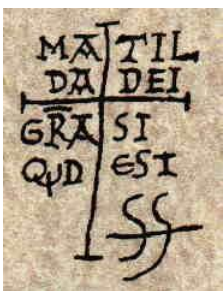 MA TIL
DA DEI
GR̅A SI
QVD EST
SS